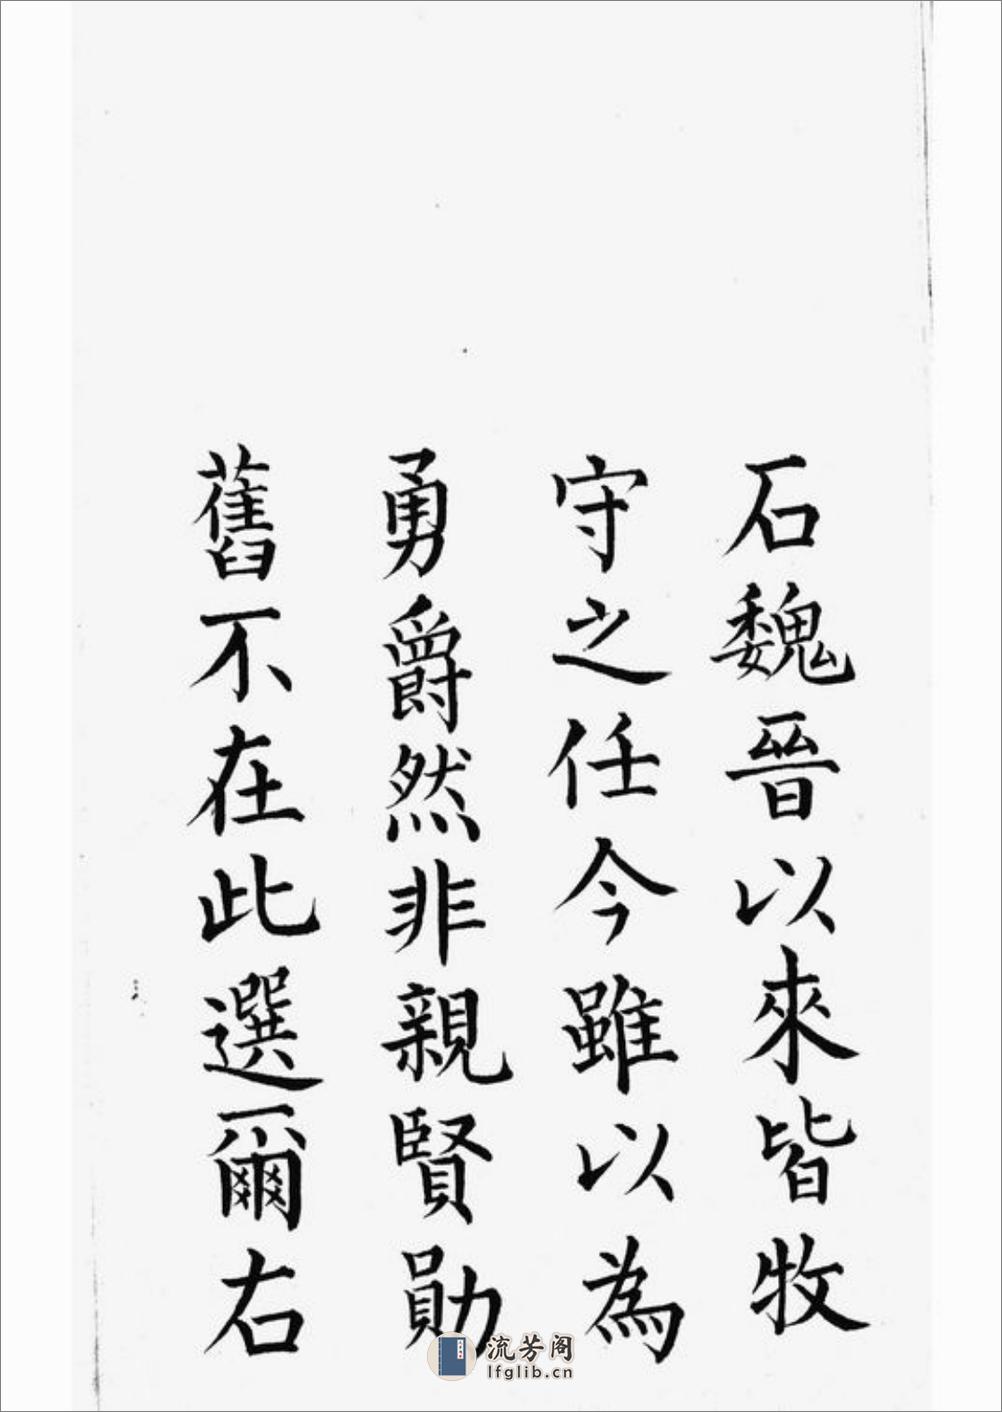 石魏晉以來皆牧
守之任今雖以為
勇爵然非親賢勛
舊不在此選爾右
流芳阁
lfglib.cn